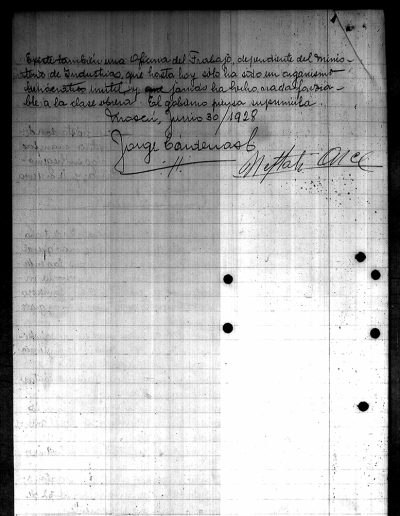 Existe también una Oficina del Trabajo, dependiente del Minis-
terio de Industrias, que hasta hoy solo ha sido un organismo
burocrático inutil y que jamás ha hecho nada favora-
ble a la clase obrera. El gobierno piensa suprimirla.
Moscú, Junio 30/1928
Jorge Cardenas
Neftalí Arce